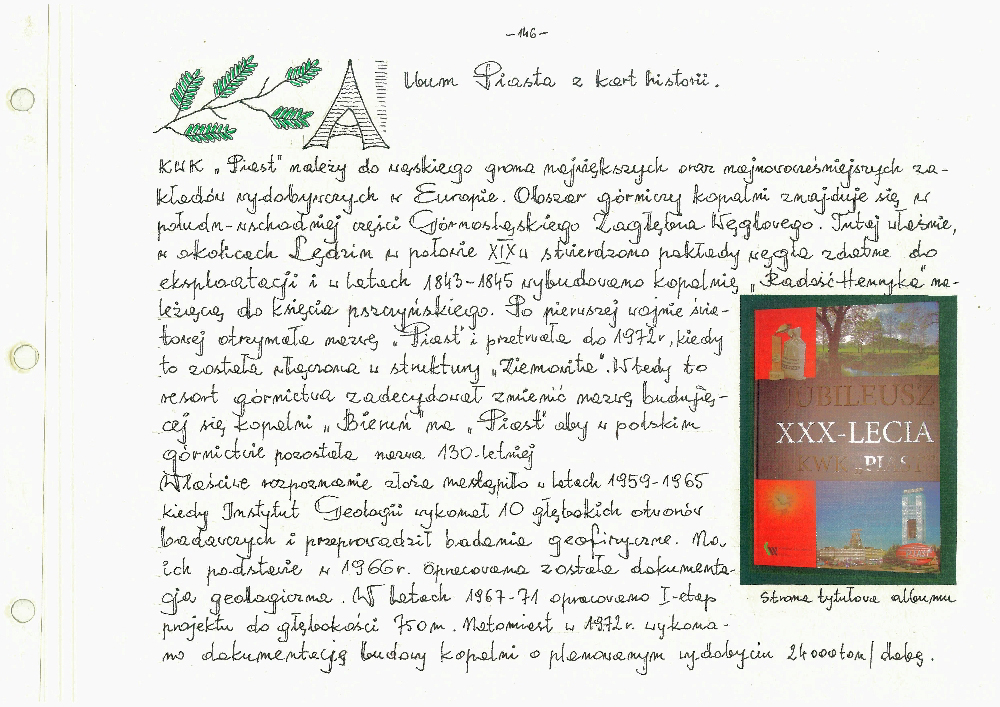 -146-
Album Piasta z kart historii.
KWK „Piast" należy do wąskiego grona największych oraz najnowocześniejszych za-
kładów wydobywczych w Europie. Obszar górniczy kopalni znajduje się w
połudn-wschodniej części Górnośląskiego Zagłębia Węglowego. Tutaj właśnie,
w okolicach Lędzin w połowie XIX w stwierdzono pokłady węgla zdatne do
eksploatacji i w latach 1843-1845 wybudowano kopalnię „Radość Henryka" na-
leżącą do księcia pszczyńskiego. Po pierwszej wojnie świa-
towej otrzymała nazwę „Piast" i przetrwała do 1972r, kiedy
to została włączona w struktury „Ziemowita". Wtedy to
resort górnictwa zadecydował zmienić nazwę budują-
cej się kopalni „Bieruń" na „Piast" aby w polskim
górnictwie pozostała nazwa 130-letniej
Właściwe rozpoznanie złoża nastąpiło w latach 1959-1965
kiedy Instytut Geologii wykonał 10 głębokich otworów
badawczych i przeprowadził badania geofizyczne. Na
ich podstawie w 1966r. opracowana została dokumenta-
cja geologiczna. W latach 1967-71 opracowano I-etap
projektu do głębokości 750m. Natomiast w 1972r. wykona-
no dokumentację budowy kopalni o planowanym wydobyciu 24000ton/dobę.
JUBILEUSZ
XXX-LECIA
KWK „PIAST"
Strona tytułowa albumu